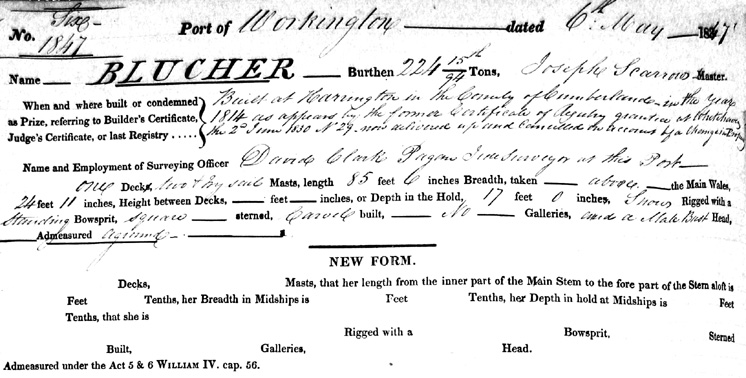 No. Six
1847 Port of Workington dated 6th May 1847
Name BLUCHER Burthen 224 15th/94 Tons, Joseph Scarrow Master.
When and where built or condemned Built at Harrington in the County of Cumberland in the Year
as Prize, referring to Builder's Certificate, 1814 as appears by the former Certificate of Registry granted at Whitehaven
Judge's Certificate, or last Registry ..... the 2d June 1830 No 29 now delivered up and Cancelled on account of a Change in
Name and Employment of Surveying Officer David Clark Pagan Tide Surveyor at this Port
one Decks, two & Try sail Masts, length 85 feet 6 inches Breadth, taken above the Main Wales,
24 feet 11 inches, Height between Decks, — feet — inches, or Depth in the Hold, 17 feet 0 inches, Snow Rigged with a
Standing Bowsprit, square sterned, Carvel built, No Galleries, and a Male Bust Head,
Admeasured aground
NEW FORM.
Decks, Masts, that her length from the inner part of the Main Stem to the fore part of the Stern aloft is
Feet Tenths, her Breadth in Midships is Feet Tenths, her Depth in hold at Midships is Feet
Tenths, that she is
Rigged with a Bowsprit, Sterned
Built, Galleries, Head.
Admeasured under the Act 5 & 6 WILLIAM IV. cap. 56.